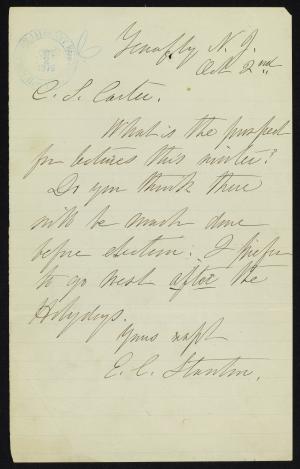 Tenafly N. J.
Oct 2nd
C. S. Carter.
What is the prospect
for lectures this winter?
Do you think there
will be much done
before election. I prefer
to go west after the
Holydays.
Yours respt
E. C. Stanton.